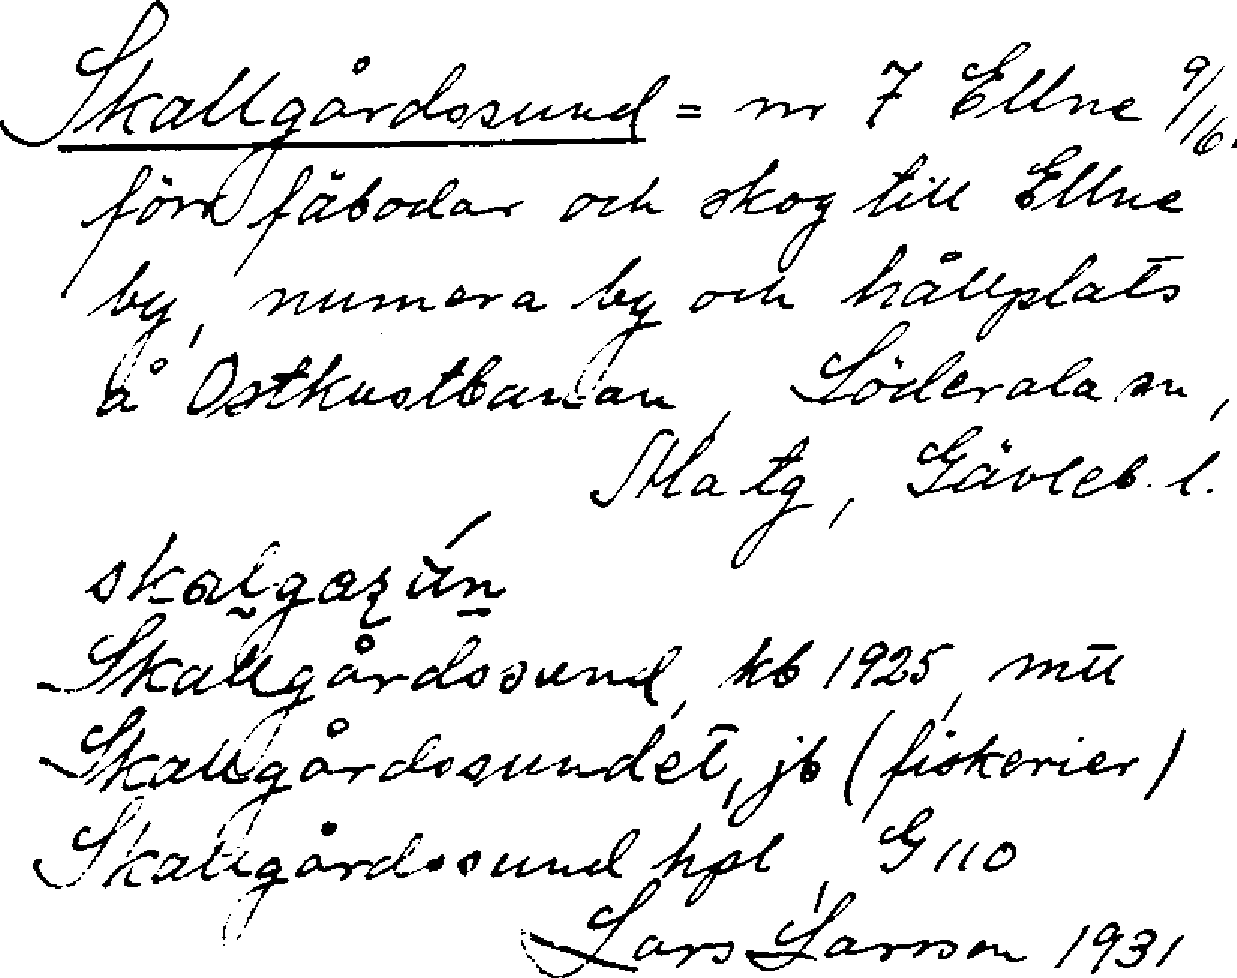 Skallgårdssund = nr 7 Ellne 9/16.
förr fäbodar och skog till Ellne
by, numera by och hållplats
å Ostkustbanan, Söderala sn,
Ala tg, Gävleb. l.
Skallgårdssund, kb 1925, mtl
Skallgårdssundet, jb (fiskerier)
Skallgårdssund hpl, G 110
Lars Larsson 1931